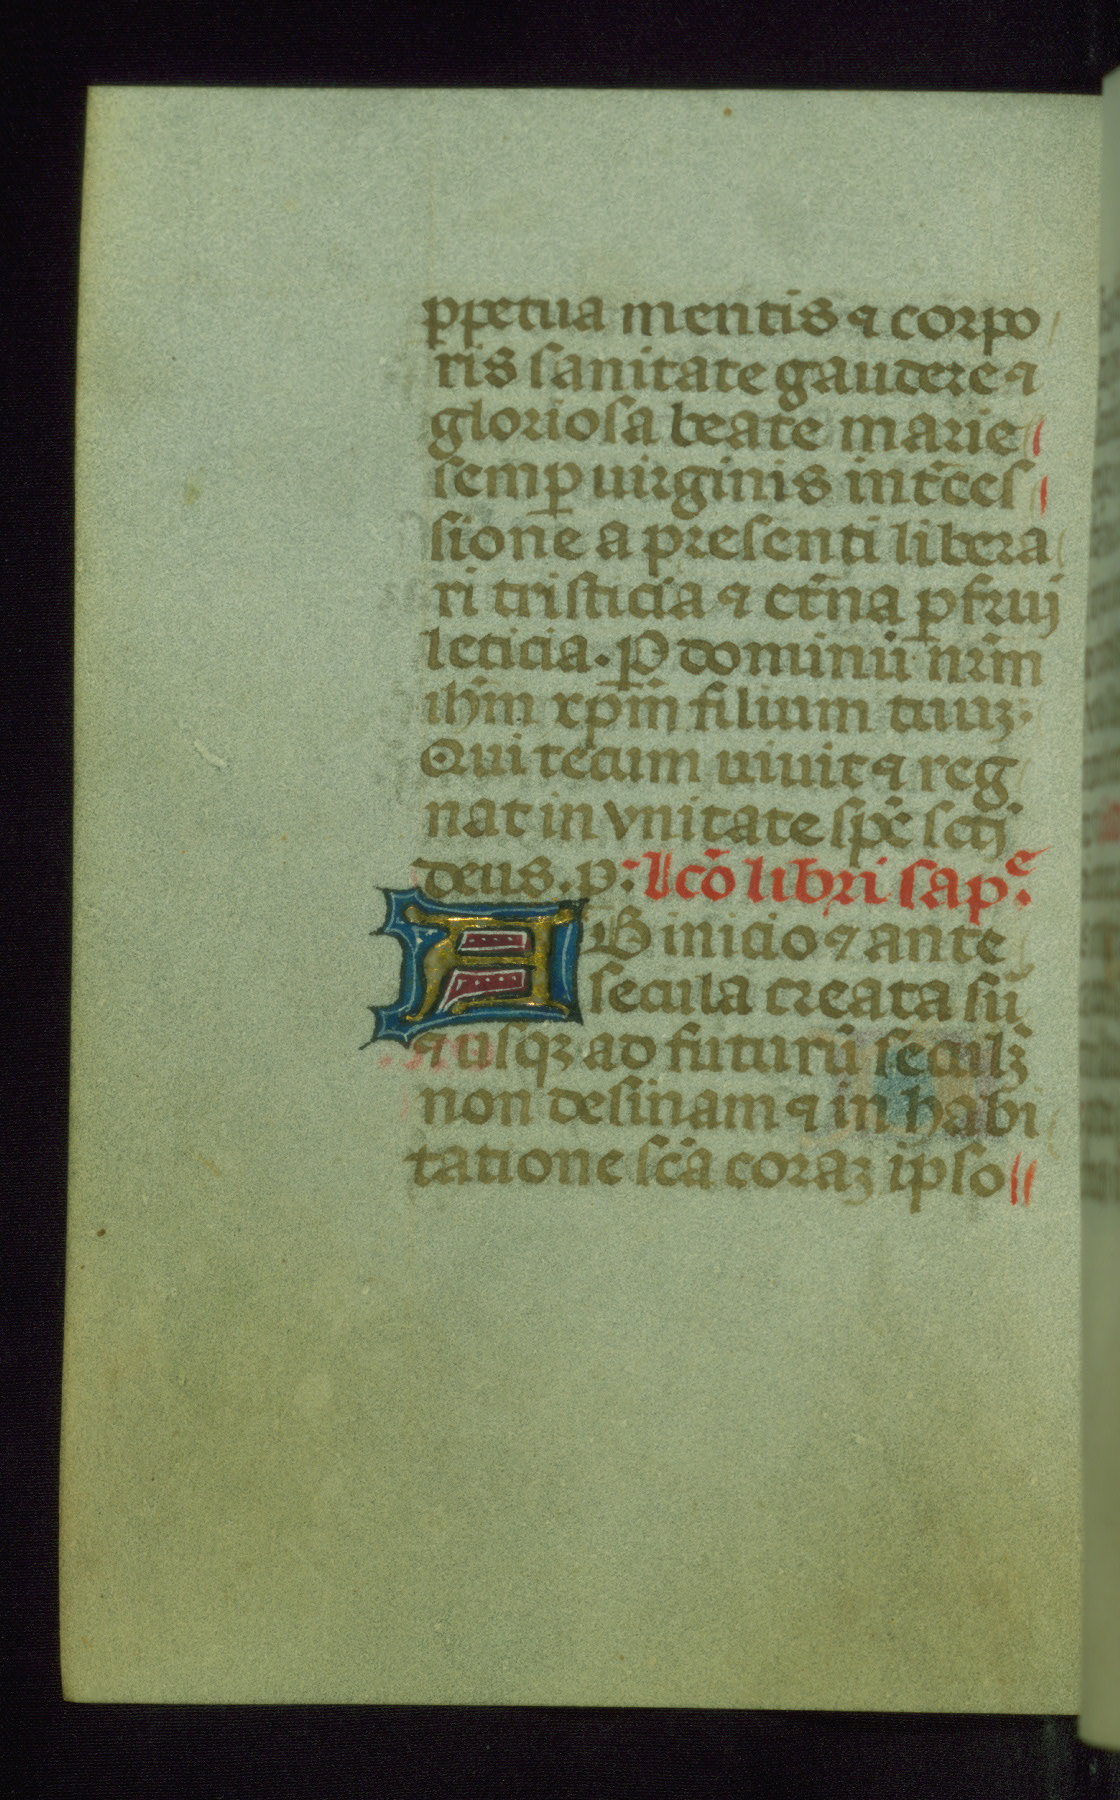 ppetua mentis ⁊ corpo
ris sanitate gaudere ⁊
gloriosa beate marie
semꝑ uirginis int̄ces
sione a presenti libera
ri tristicia ⁊ et̄na ꝑfrui
leticia. Ꝑ dominū nr̄m
ihm̄ xp̄m̄ filium tuuꝫ.
Qui tecum uiuit ⁊ reg
nat in vnitate sp̄c sctī
deus. p. lcō libri sapᵉ.
AB inicio ⁊ ante
secula creata sū
⁊ usqꝫ ad futurū seculꝫ
non desinam ⁊ in habi
tatione sc̄a coraꝫ ipso